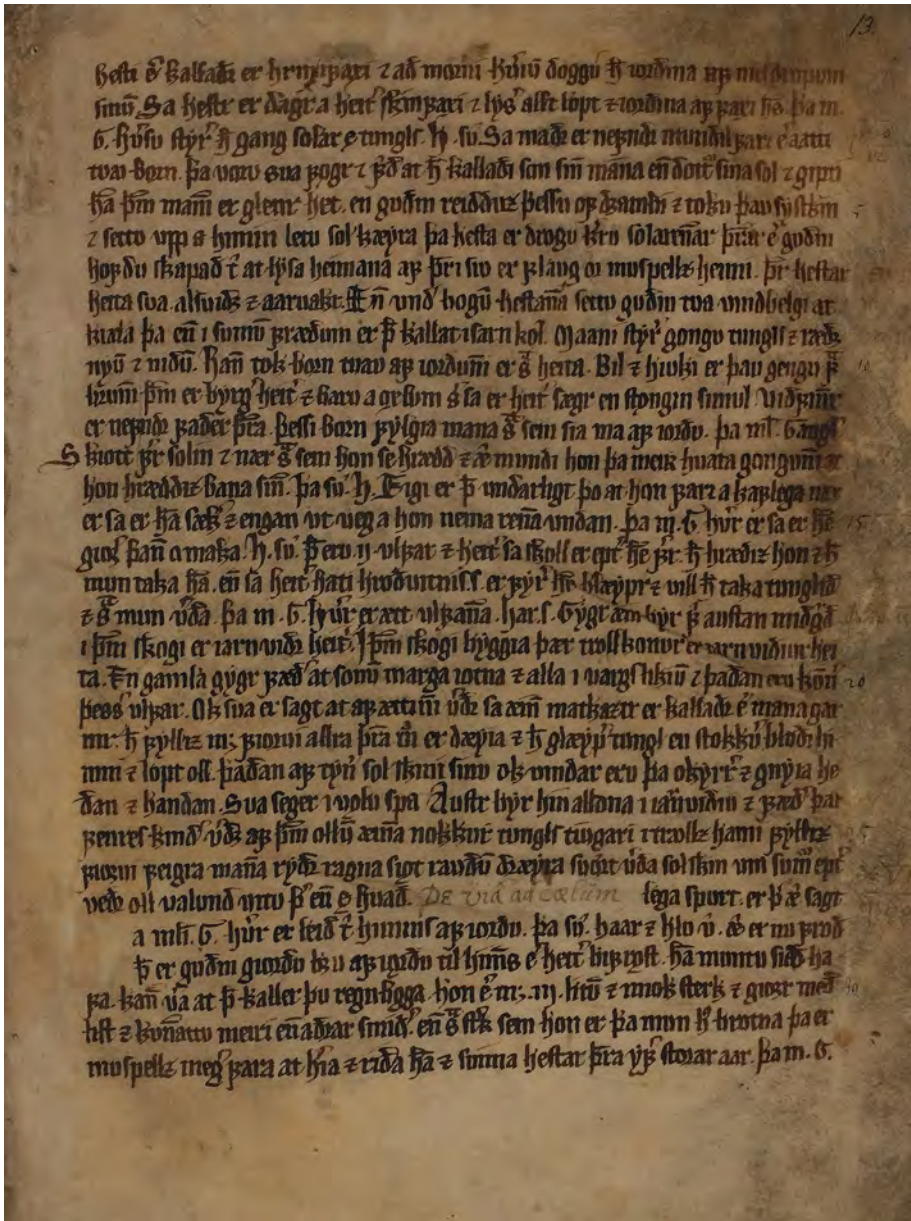 13.
hesti er kallaðr er hrimfaxi ⁊ að morni hueriū dǫggu h̄ iorðina af meldropum
sinū. Sa hestr er dagr a heit͛ skinfaxi ⁊ lys͛ allt lopt ⁊ iorðina af faxi hā. þa m.
G. hu͛su styr͛ h̄ gang solar e tungls. H. sv. Sa maðr er nefndr mundilfari e aatti
tvav born. þau voru sva fogr ⁊ frið at h̄ kallaði son sin mána en dott͛ sina sol ⁊ gipti
hā þm manni er glenr het. en guðin reidduz þessu ofdrambi ⁊ toku þau systkin
⁊ settu upp a himin letu sol kæyra þa hesta er drogu kerru solarinnar þrar er guðin
hofdu skapað t͛ at lysa heimana af þri siv er flaug or muspellz heimi. þr hestar
heita sva. alsuiðr ⁊ aaruakr. En und͛ bogū hestāna settu guðin tva vindbelgi at
kiæla þa en i sumū frædum er þ̄ kallat isarn kol. Maani styr͛ gongu tungls ⁊ ræðr
nyū ⁊ niðū. Hann tok born tvav af iorðunni er s̄ heita. Bil ⁊ hiuki er þau gengu f͛
brūni þm er byrg͛ heit͛ ⁊ baru a oxlum s͛ sa er heit͛ sægr en stongin simul. Viðfinnr
er nefndr fader þra. þessi born fylgia mana s̄ sem sia ma af iorðu. þa ml. Gangl͛
Skiott fer solin ⁊ nær s̄ sem hon se hrædd ⁊ æ mundi hon þa meir huata gongunni at
hon hræddiz bana sin. þa sv. H. Eigi er þ̄ undarligt þo at hon fari akaflega nær
er sa er hā sæk͛ ⁊ engan ut veg a hon nema reña undan. þa m. G hu͛r er sa er hē
gior͛ þañ omaka. H. sv. þ̄ eru ij. ulfar ⁊ heit͛ sa skoll er ept͛ hē fer. h̄ hræðiz hon ⁊ h̄
mun taka hā. en sa heit͛ hati hroduitniss. er fyr͛ hē hlæypr ⁊ vill h̄ taka tunglið
⁊ s̄ mun u͛ða. þa m. G. Hu͛r er ætt ulfanna. Har. s. Gygr ein byr f͛ austan miðgarð
i þm skogi er iarnviðr heit͛. I þm skogi byggia þær trollkonur er iarnviðiur hei
ta. En gamla gygr fæð͛ at sonū marga iotna ⁊ alla i vargs likiū ⁊ þaðan eru komn͛
þess͛ ulfar. Ok sva er sagt at af ættinni u͛ðr sa æinn matkaztr er kallaðr er managar
mr. h̄ fylliz m; fiorui allra þra m̄ er dæyia ⁊ h̄ glæyp͛ tungl en stokku͛ bloði hi
min ⁊ lopt oll. þaðan af tyn͛ sol skini sinu ok vindar eru þa okyrr͛ ⁊ gnyia he
ðan ⁊ handan. Sva seger i volu spa Austr byr hin alldna i iarnviðiu ⁊ fæð͛ þar
fenres kind͛ u͛ðr af þm ollū æinna nokkur tungls tiugari i trollz hami fylliz
fiorui feigra manna ryðr ragna siot rauðū dræyra suort u͛ða sol skin um sumr͛ ept͛
veðr oll valund vitu þ̄ en e huað. De via ad cœlum lega spurt. er þ̄ æ sagt
a ml. G. hu͛r er leið t͛ himins af iorðu. þa sv. haar ⁊ hlo v͛. Er nu froð
þ̄ er guðin giorðu bru af iorðu til himins e heit͛ bifrost. hā muntu sieð ha
fa. kan v͛a at þ̄ kaller þu regnboga. hon e͛ m; .iij. litū ⁊ miok sterk ⁊ gior með
list ⁊ kunnattu meiri en aðrar smið͛. en s̄ sterk sem hon er þa mun h͛ brotna þa er
muspellz meg͛ fara at hia ⁊ riða hā ⁊ suima hestar þra yf͛ storar aar. þa m. G.